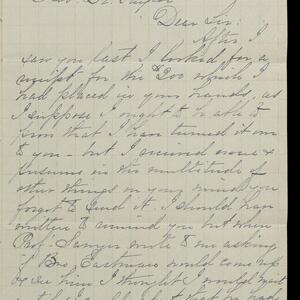 Dear Sir:
After I
saw you last I looked for a
receipt for the $200 which I
had placed in your hands, as
I suppose I ought to be able to
prove that I have turned it over
to you - but I received none &
presume in the multitude of
other things on your mind you
forgot to send it. I should have
written to remind you but when
Prof. Sawyer wrote to me asking
if Bro. Eastman would come up
to see him I thought I would wait